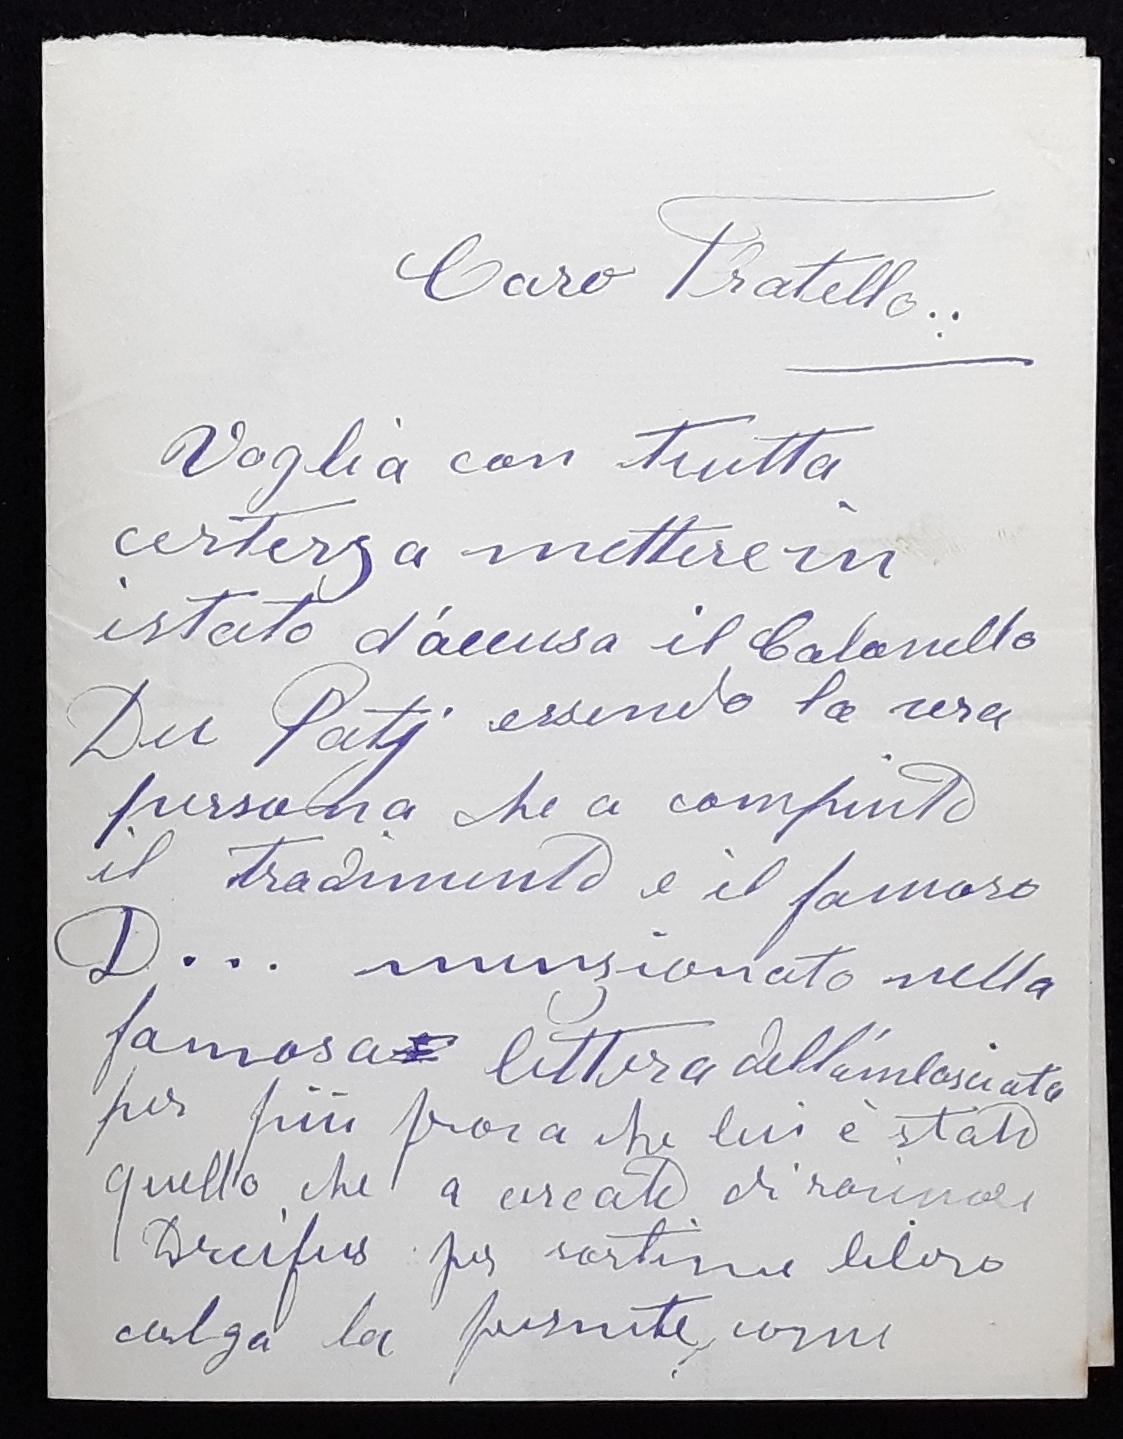 Caro Fratello..
Voglia con tutta
certezza mettere in
istato d'accusa il Colonello
Du Patj essendo la vera
persona che a compiuto
il tradimento e il famoso
D... munzionato nella
famosa lettera dell'imbasciata
per più prova che lui è stato
quello che a creato di rovinare
Dreifus per sortirne libero
valga la presente, come